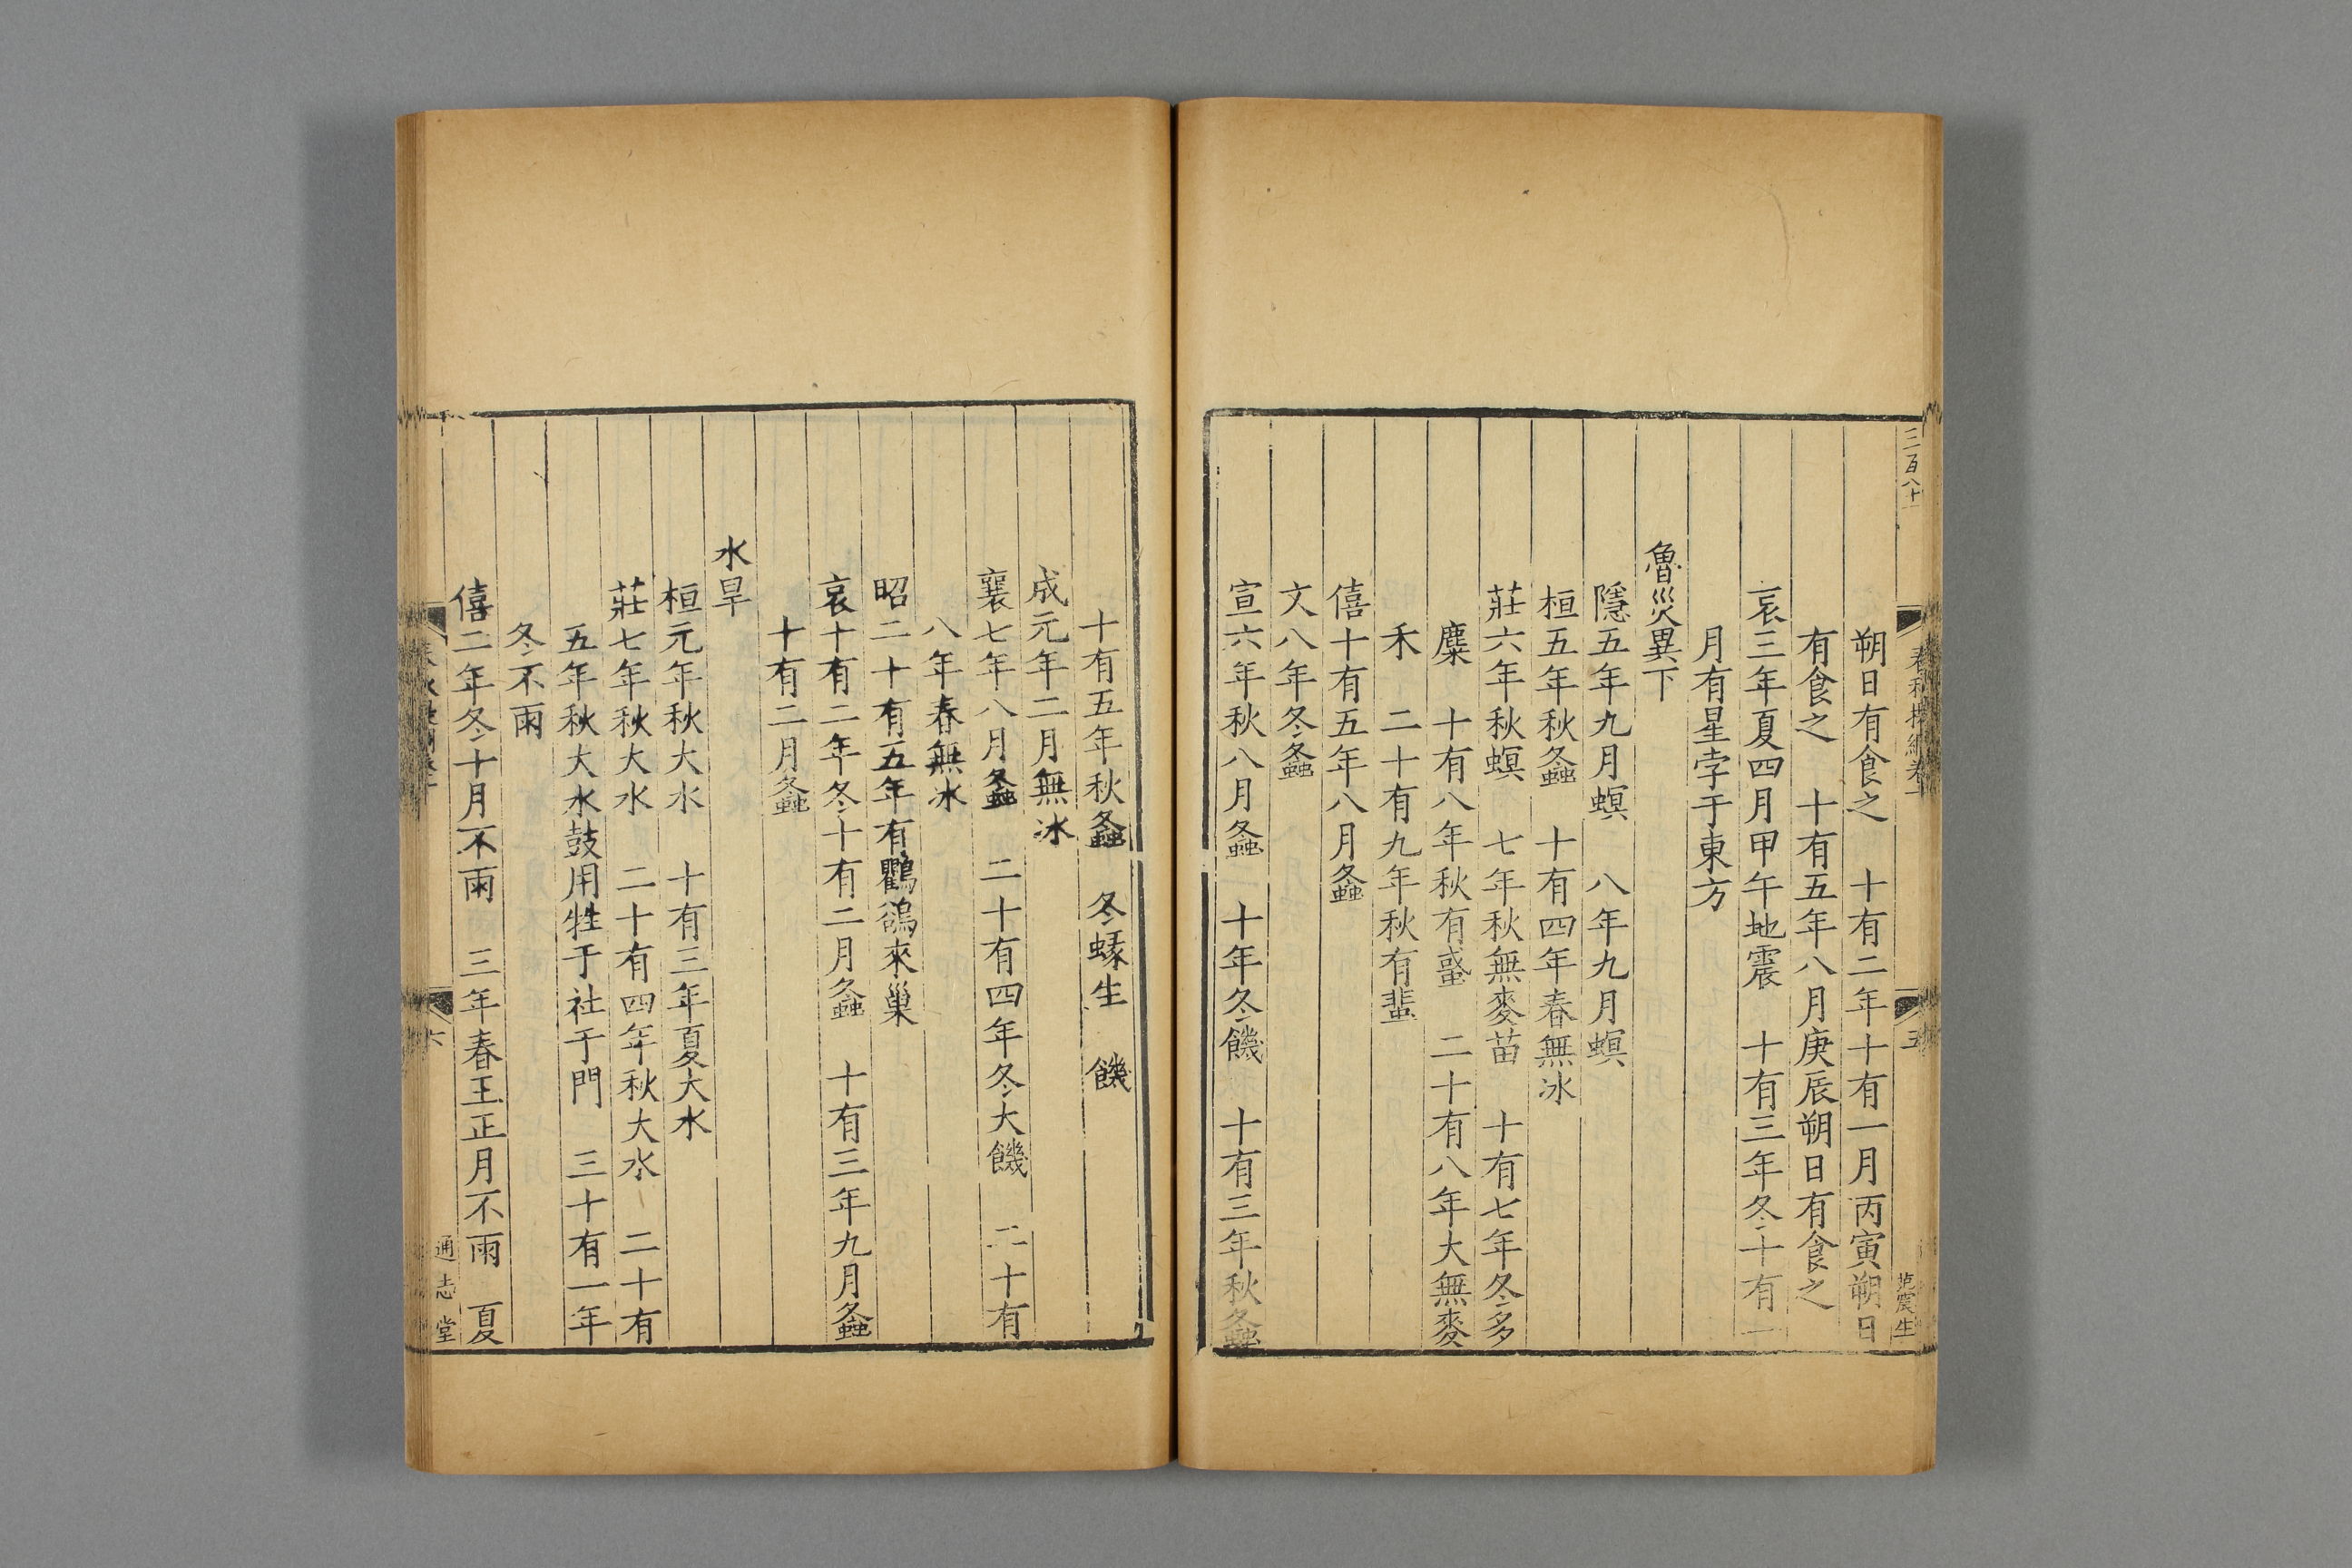 三百八十
五
范震生
朔日有食之　十有二年十有一月丙寅朔日
有食之　十有五年八月庚辰朔日有食之
哀三年夏四月甲午地震　十有三年冬十有一
月有星孛于東方
魯災異下
隱五年九月螟　八年九月螟
桓五年秋螽　十有四年春無冰
莊六年秋螟　七年秋無麥苗　十有七年冬多
麋　十有八年秋有蜮　二十有八年大無麥
禾　二十有九年秋有蜚
僖十有五年八月螽
文八年冬螽
宣六年秋八月螽　十年冬饑　十有三年秋螽
十有五年秋螽　冬蝝生　饑
成元年二月無冰
襄七年八月螽　二十有四年冬大饑　二十有
八年春無冰
昭二十有五年有鸜鵒來巢
哀十有二年冬十有二月螽　十有三年九月螽
十有二月螽
水旱
桓元年秋大水　十有三年夏大水
莊七年秋大水　二十有四年秋大水　二十有
五年秋大水鼓用牲于社于門　三十有一年
冬不雨
僖二年冬十月不雨　三年春王正月不雨　夏
六
通志堂